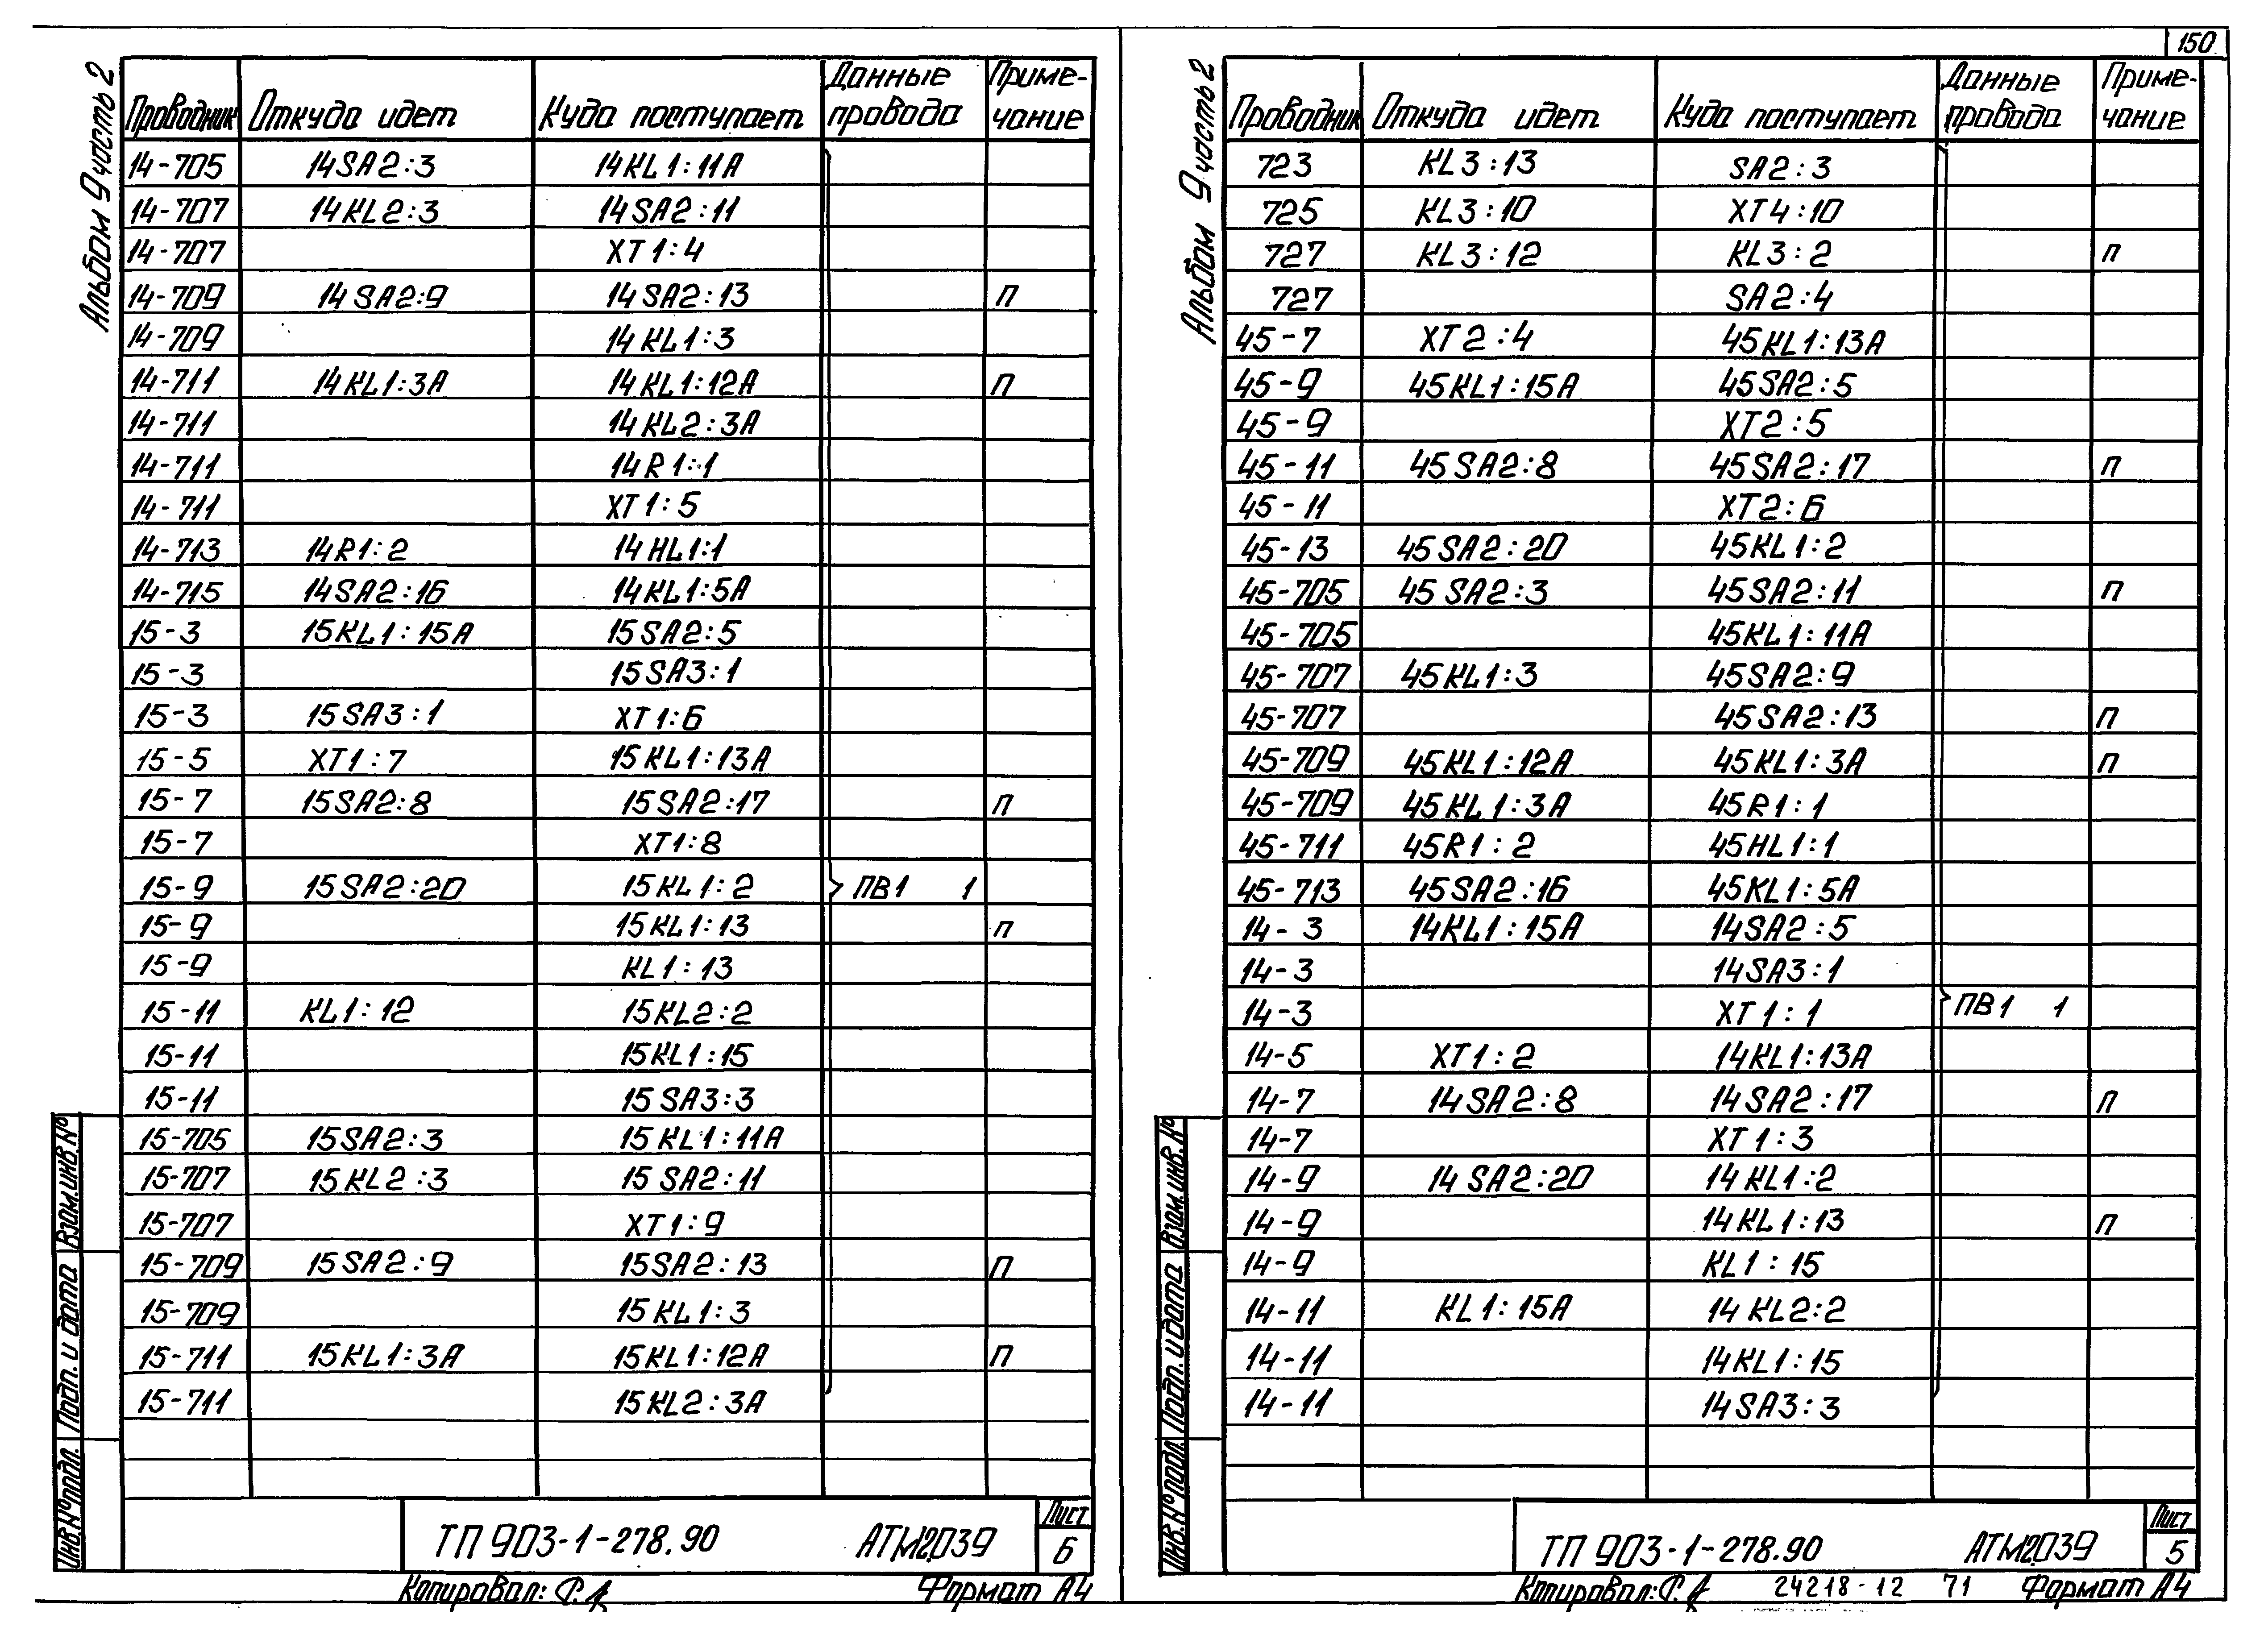 150
Альбом 9 часть 2
Проводник Откуда идет Куда поступает Данные провода Приме-чание
14-705 14SA2:3 14KL1:11A
14-707 14KL2:3 14SA2:11
14-707 XT1:4
14-709 14SA2:9 14SA2:13 П
14-709 14KL1:3
14-711 14KL1:3A 14KL1:12A П
14-711 14KL2:3A
14-711 14R1:1
14-711 XT1:5
14-713 14R1:2 14HL1:1
14-715 14SA2:16 14KL1:5A
15-3 15KL1:15A 15SA2:5
15-3 15SA3:1
15-3 15SA3:1 XT1:6
15-5 XT1:7 15KL1:13A
15-7 15SA2:8 15SA2:17 П
15-7 XT1:8
15-9 15SA2:20 15KL1:2 ПВ1 1
15-9 15KL1:13 П
15-9 KL1:13
15-11 KL1:12 15KL2:2
15-11 15KL1:15
15-11 15SA3:3
15-705 15SA2:3 15KL1:11A
15-707 15KL2:3 15SA2:11
15-707 XT1:9
15-709 15SA2:9 15SA2:13 П
15-709 15KL1:3
15-711 15KL1:3A 15KL1:12A П
15-711 15KL2:3A
Инв.№подл. Подп. и дата Взам.инв.№
ТП 903-1-278.90 АТМ2.039 Лист 6
Копировал: Формат А4
Альбом 9 часть 2
Проводник Откуда идет Куда поступает Данные провода Приме-чание
723 KL3:13 SA2:3
725 KL3:10 XT4:10
727 KL3:12 KL3:2 П
727 SA2:4
45-7 XT2:4 45KL1:13A
45-9 45KL1:15A 45SA2:5
45-9 XT2:5
45-11 45SA2:8 45SA2:17 П
45-11 XT2:6
45-13 45SA2:20 45KL1:2
45-705 45SA2:3 45SA2:11 П
45-705 45KL1:11A
45-707 45KL1:3 45SA2:9
45-707 45SA2:13 П
45-709 45KL1:12A 45KL1:3A П
45-709 45KL1:3A 45R1:1
45-711 45R1:2 45HL1:1
45-713 45SA2:16 45KL1:5A
14-3 14KL1:15A 14SA2:5
14-3 14SA3:1
14-3 XT1:1 ПВ1 1
14-5 XT1:2 14KL1:13A
14-7 14SA2:8 14SA2:17 П
14-7 XT1:3
14-9 14SA2:20 14KL1:2
14-9 14KL1:13 П
14-9 KL1:15
14-11 KL1:15A 14KL2:2
14-11 14KL1:15
14-11 14SA3:3
Инв.№подл. Подп. и дата Взам.инв.№
ТП 903-1-278.90 АТМ2.039 Лист 5
Копировал: 24218-12 71 Формат А4